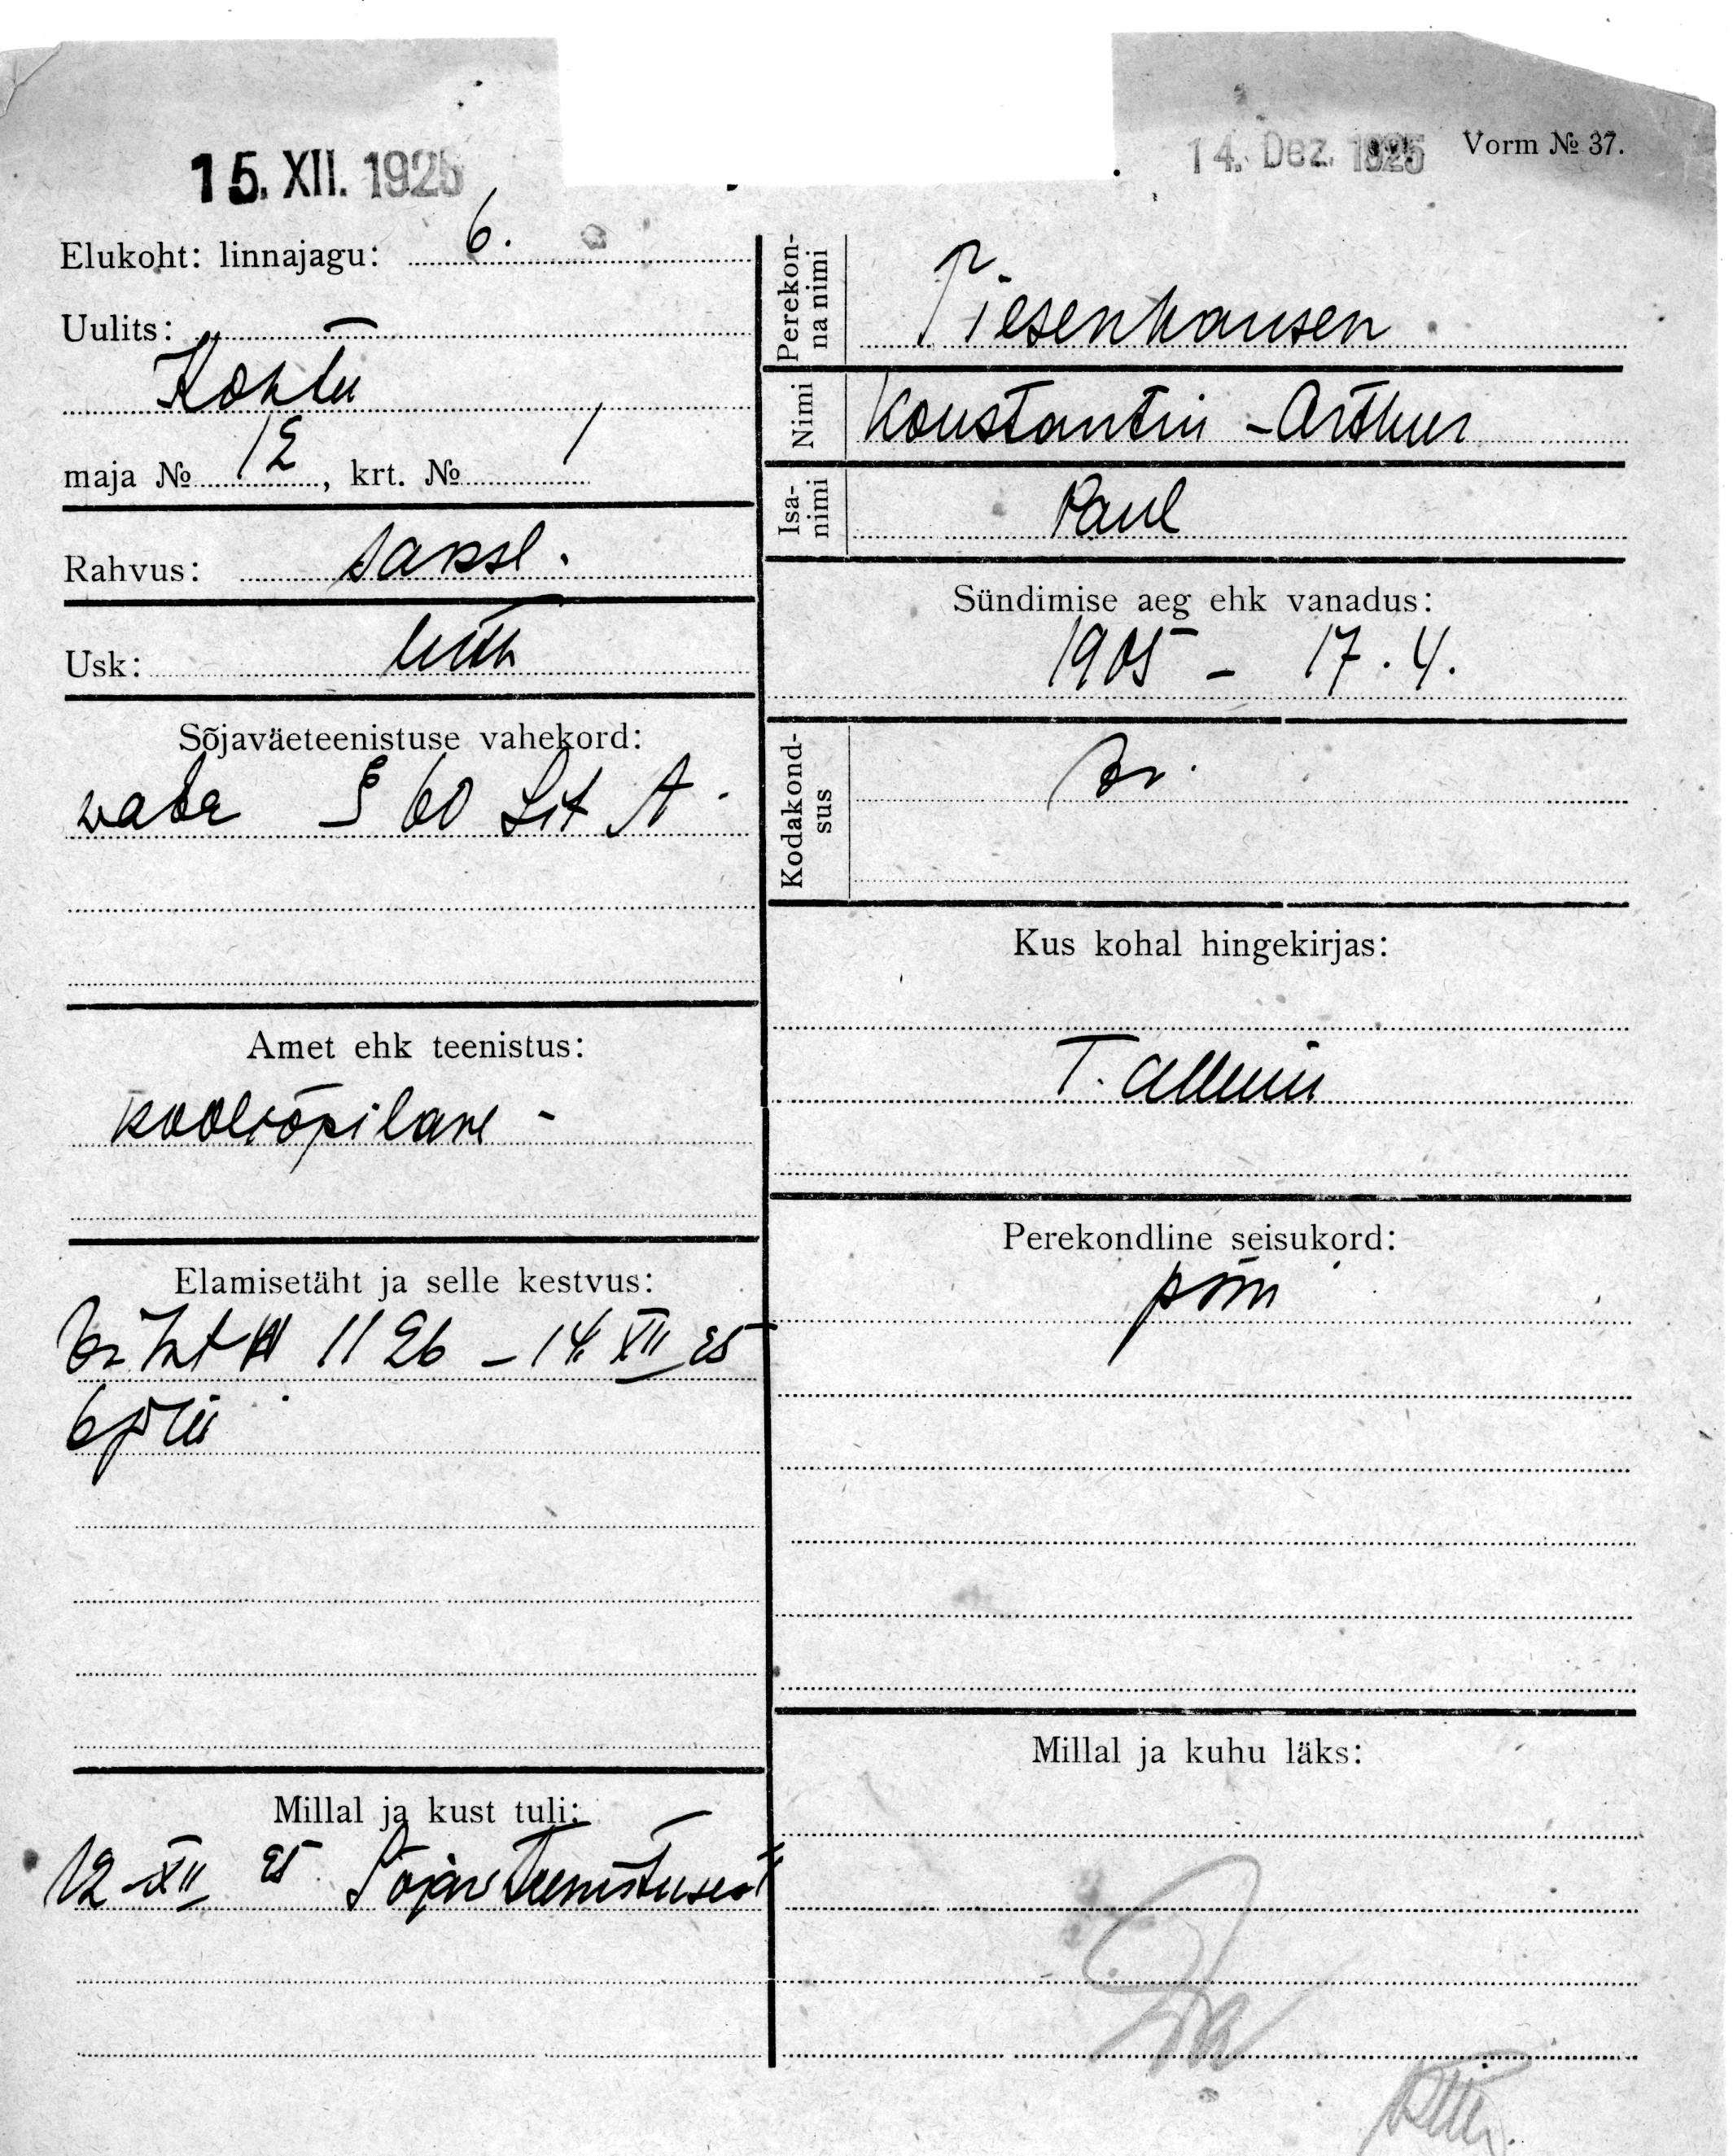 15. XII. 1925
14. Dez. 1925
Vorm № 37.
Elukoht: linnajagu: 6.
Uulits:
Kohtu
maja № 12, krt. № 1
Rahvus: saksl.
Usk: luth
Sõjaväeteenistuse vahekord:
waba § 60 Lit A.
Amet ehk teenistus:
kooliõpilane -
Elamisetäht ja selle kestvus:
1126 - 14. XII 25
Millal ja kust tuli:
12-XII 25 Sõjav teenistusest
Perekonna nimi
Tiesenhausen
Nimi
Konstantin - Arthur
Isanimi
Paul
Sündimise aeg ehk vanadus:
1905 - 17. 4.
Kodakondsus
Kus kohal hingekirjas:
Tallinn
Perekondline seisukord:
Millal ja kuhu läks: